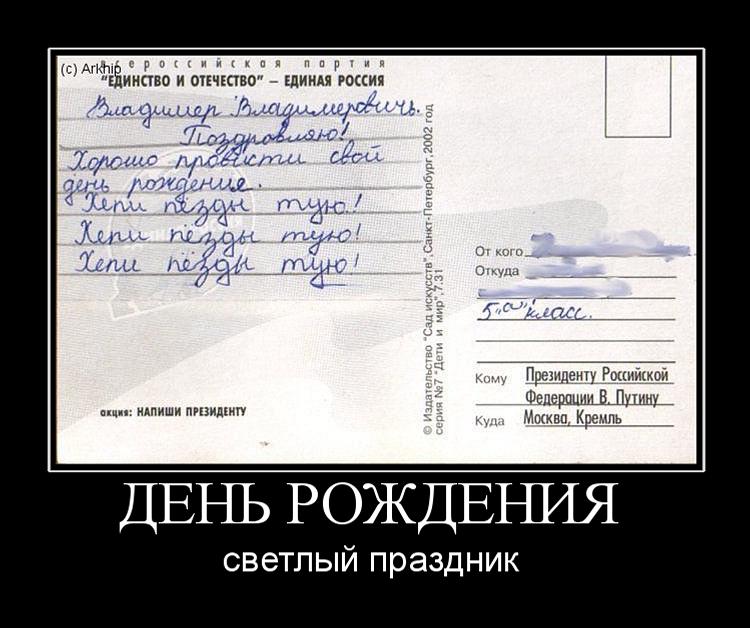 (c) Arkhip
Всероссийская партия
"ЕДИНСТВО И ОТЕЧЕСТВО" – ЕДИНАЯ РОССИЯ
Владимер Владимеровичь.
Поздровляю!
Хорошо провисти свой
день рождение.
Хепи пёзды тую!
Хепи пёзды тую!
Хепи пёзды тую!
акция: НАПИШИ ПРЕЗИДЕНТУ
© Издательство "Сад искусств", Санкт-Петербург, 2002 год
серия №7 "Дети и мир", 7.31
От кого
Откуда
5 "а" класс.
Кому Президенту Российской
Федерации В. Путину
Куда Москва, Кремль
ДЕНЬ РОЖДЕНИЯ
светлый праздник